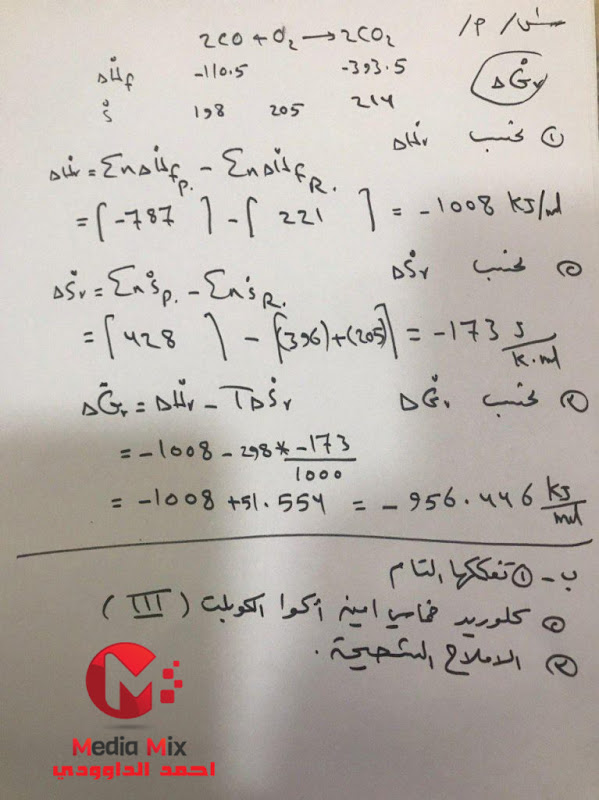 س١/ م/
2CO + O₂ → 2CO₂
ΔH°f -110.5 -393.5
ΔG°r
S° 198 205 214
① نحسب ΔH°r
ΔH°r = ΣnΔH°f P. - ΣnΔH°f R.
= [-787] - [221] = -1008 KJ/mol
② نحسب ΔS°r
ΔS°r = ΣnS°P. - ΣnS°R.
= [428] - [(396)+(205)] = -173 J/K.mol
③ نحسب ΔG°r
ΔG°r = ΔH°r - TΔS°r
= -1008 - 298 * -173/1000
= -1008 + 51.554 = -956.446 KJ/mol
ب - ① تفككها التام
② كلوريد خماسي امين أكوا الكوبلت (III)
③ الاملاح الشحيحة.
Media Mix
احمد الداوودي